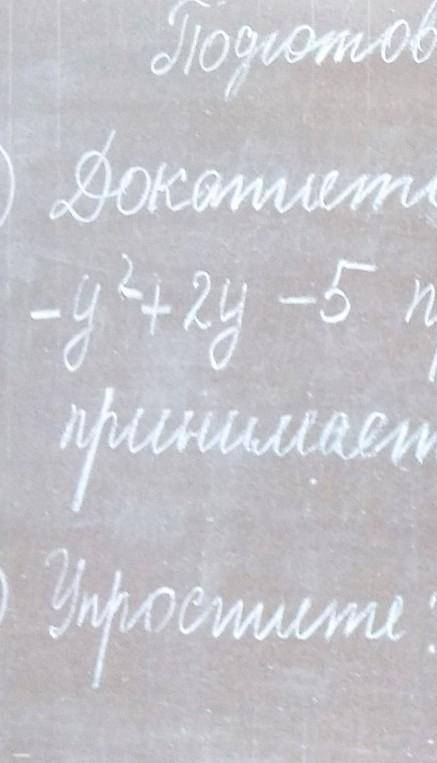 Подготов
) Докажите
-y²+2y -5 п
принимает
) Упростите: